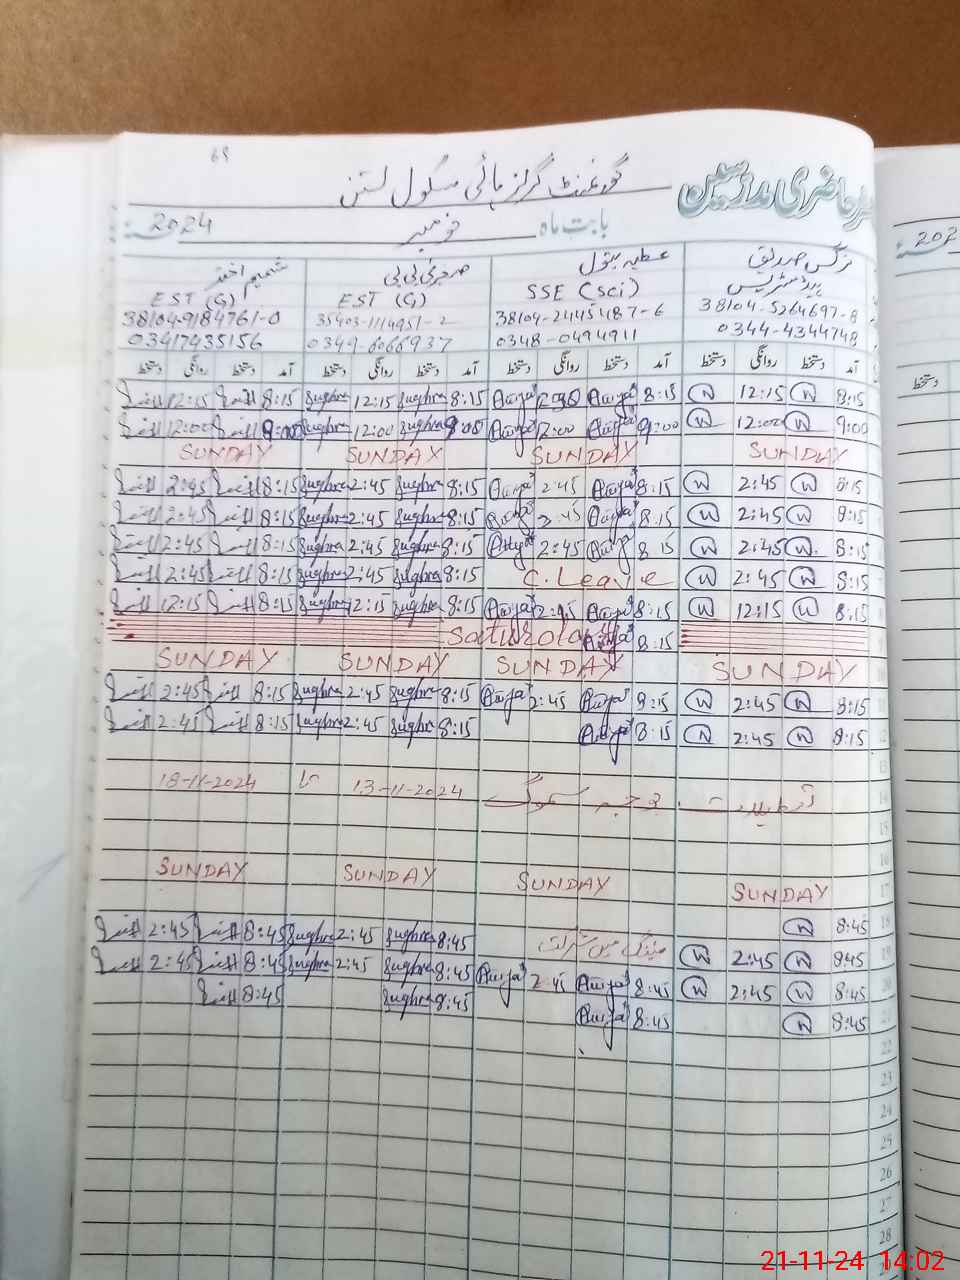 69
رحاضری مدرسین گورنمنٹ گرلز ہائی سکول لستن
بابت ماہ نومبر 2024
202
نرگس صدیق عطیہ بتول صغریٰ بی بی شمیم اختر
ہیڈ مسٹریس SSE (Sci) EST (G) EST (G)
38104-5264697-8 38104-2445487-6 35403-1114951-2 38104-9184761-0
0344-4344748 0348-0494911 0349-6066937 03417435156
آمد دستخط روانگی دستخط آمد دستخط روانگی دستخط آمد دستخط روانگی دستخط آمد دستخط روانگی دستخط
دستخط
8:15 12:15 8:15 Attya Attya 8:15 Sughra 12:15 Sughra 8:15 12:15
9:00 12:00 9:00 Attya 12:00 Attya 9:00 Sughra 12:00 Sughra 9:00 12:00
SUNDAY SUNDAY SUNDAY SUNDAY
8:15 2:45 8:15 Attya 2:45 Attya 8:15 Sughra 2:45 Sughra 8:15 2:45
8:15 2:45 8:15 Attya 2:45 Attya 8:15 Sughra 2:45 Sughra 8:15 2:45
8:15 2:45 8:15 Attya 2:45 Attya 8:15 Sughra 2:45 Sughra 8:15 2:45
8:15 2:45 C.Leave 8:15 Sughra 2:45 Sughra 8:15 2:45
8:15 12:15 8:15 Attya Attya 8:15 Sughra 12:15 Sughra 8:15 12:15
8:15 Attya Saturday
SUNDAY SUNDAY SUNDAY SUNDAY
8:15 2:45 8:15 Attya 2:45 Attya 8:15 Sughra 2:45 Sughra 8:15 2:45 11
8:15 2:45 8:15 Attya 8:15 Sughra 2:45 Sughra 8:15 2:45 12
13
تعطیلات بوجہ سموگ 13-11-2024 تا 18-11-2024 14
15
16
SUNDAY SUNDAY SUNDAY SUNDAY 17
8:45 18
8:45 2:45 میٹنگ میں شرکت 8:45 Sughra 2:45 Sughra 8:45 2:45 19
8:45 2:45 8:45 Attya 2:45 Attya 8:45 Sughra 2:45 Sughra 8:45 2:45 20
8:45 8:45 Attya 8:45 Sughra 8:45 21
22
23
24
25
26
27
28
21-11-24 14:02